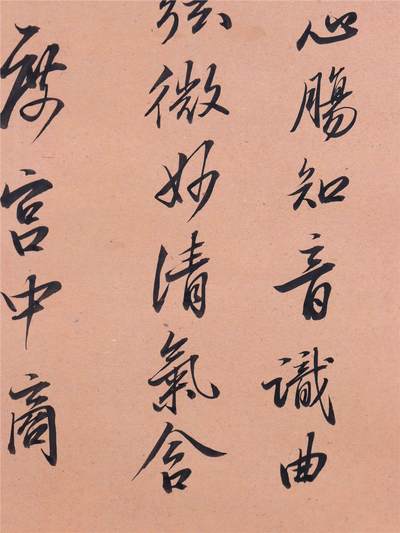 心腸知音識曲
弦微妙清氣含
度宮中商